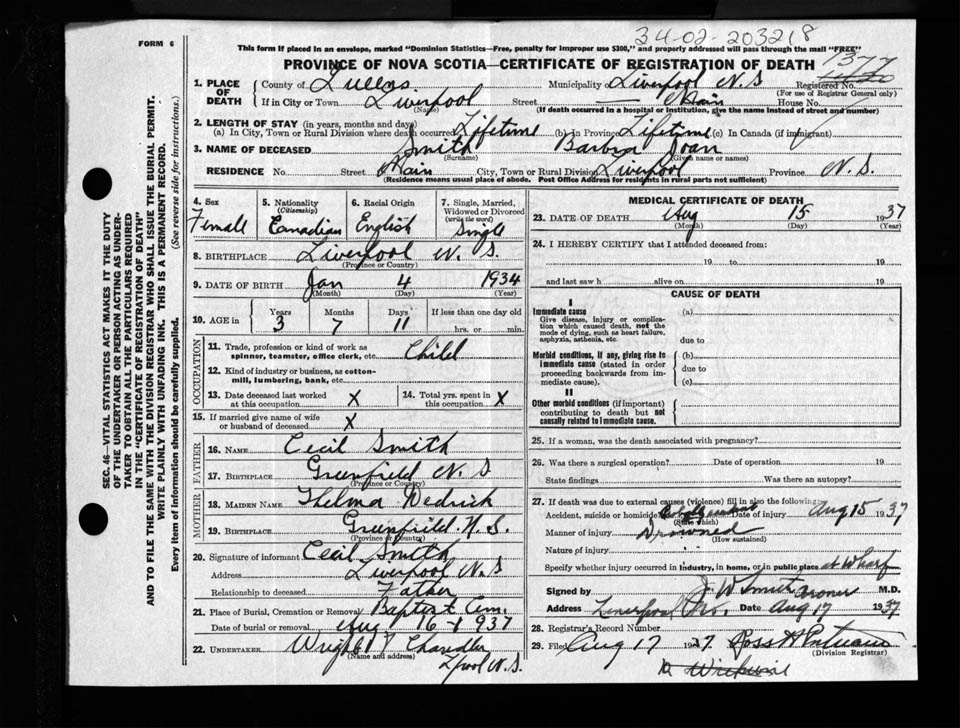 34-02-203218
FORM 6
This form if placed in an envelope, marked "Dominion Statistics—Free, penalty for improper use $300," and properly addressed will pass through the mail "FREE"
PROVINCE OF NOVA SCOTIA—CERTIFICATE OF REGISTRATION OF DEATH
1377
1. PLACE OF DEATH
County of Queens Municipality Liverpool N.S Registered No.
(For use of Registrar General only)
If in City or Town Liverpool Street — Main House No.
(Name) (If death occurred in a hospital or institution, give the name instead of street and number)
2. LENGTH OF STAY (in years, months and days)
(a) In City, Town or Rural Division where death occurred Lifetime (b) in Province Lifetime (c) In Canada (if immigrant)
3. NAME OF DECEASED Smith Barbra Joan
(Surname) (Given name or names)
RESIDENCE No. Street Main City, Town or Rural Division Liverpool Province N.S.
(Residence means usual place of abode. Post Office Address for residents in rural parts not sufficient)
4. Sex Female
5. Nationality (Citizenship) Canadian
6. Racial Origin English
7. Single, Married, Widowed or Divorced (write the word) Single
8. BIRTHPLACE Liverpool N. S.
(Province or Country)
9. DATE OF BIRTH Jan 4 1934
(Month) (Day) (Year)
10. AGE in Years Months Days If less than one day
3 7 11 hrs. or min.
OCCUPATION
11. Trade, profession or kind of work as spinner, teamster, office clerk, etc. Child
12. Kind of industry or business, as cotton-mill, lumbering, bank, etc.
13. Date deceased last worked at this occupation X
14. Total yrs. spent in this occupation X
15. If married give name of wife or husband of deceased X
FATHER
16. NAME Cecil Smith
17. BIRTHPLACE Greenfield N. S
(Province or Country)
MOTHER
18. MAIDEN NAME Thelma Wedrick
19. BIRTHPLACE Greenfield. N. S.
(Province or Country)
20. Signature of informant Cecil Smith
Address Liverpool N.S
Relationship to deceased Father
21. Place of Burial, Cremation or Removal Baptist Cem.
Date of burial or removal Aug 16 - 1937
22. UNDERTAKER Wright Chandler
(Name and address)
Lpool N.S.
MEDICAL CERTIFICATE OF DEATH
23. DATE OF DEATH Aug 15 1937
(Month) (Day) (Year)
24. I HEREBY CERTIFY that I attended deceased from:
19 to 19
and last saw h alive on 19
CAUSE OF DEATH
I
Immediate cause (a)
Give disease, injury or complication which caused death, not the mode of dying, such as heart failure, asphyxia, asthenia, etc.
due to
Morbid conditions, if any, giving rise to immediate cause (stated in order proceeding backwards from immediate cause).
(b)
due to
(c)
II
Other morbid conditions (if important) contributing to death but not causally related to immediate cause.
25. If a woman, was the death associated with pregnancy?
26. Was there a surgical operation? Date of operation 19
State findings Was there an autopsy?
27. If death was due to external causes (violence) fill in also the following:
Accident, suicide or homicide Date of injury Aug 15 1937
(State which)
Manner of injury Drowned
(How sustained)
Nature of injury
Specify whether injury occurred in industry, in home, or in public place at Wharf
Signed by J. W Smith Coroner M.D.
Address Liverpool N.S. Date Aug 17 1937
28. Registrar's Record Number
29. Filed Aug 17 1937 Ross
(Division Registrar)
SEC. 46—VITAL STATISTICS ACT MAKES IT THE DUTY
OF THE UNDERTAKER OR PERSON ACTING AS UNDER-
TAKER TO OBTAIN ALL THE PARTICULARS REQUIRED
IN THE "CERTIFICATE OF REGISTRATION OF DEATH"
AND TO FILE THE SAME WITH THE DIVISION REGISTRAR WHO SHALL ISSUE THE BURIAL PERMIT.
WRITE PLAINLY WITH UNFADING INK. THIS IS A PERMANENT RECORD.
Every item of information should be carefully supplied. (See reverse side for instructions.)